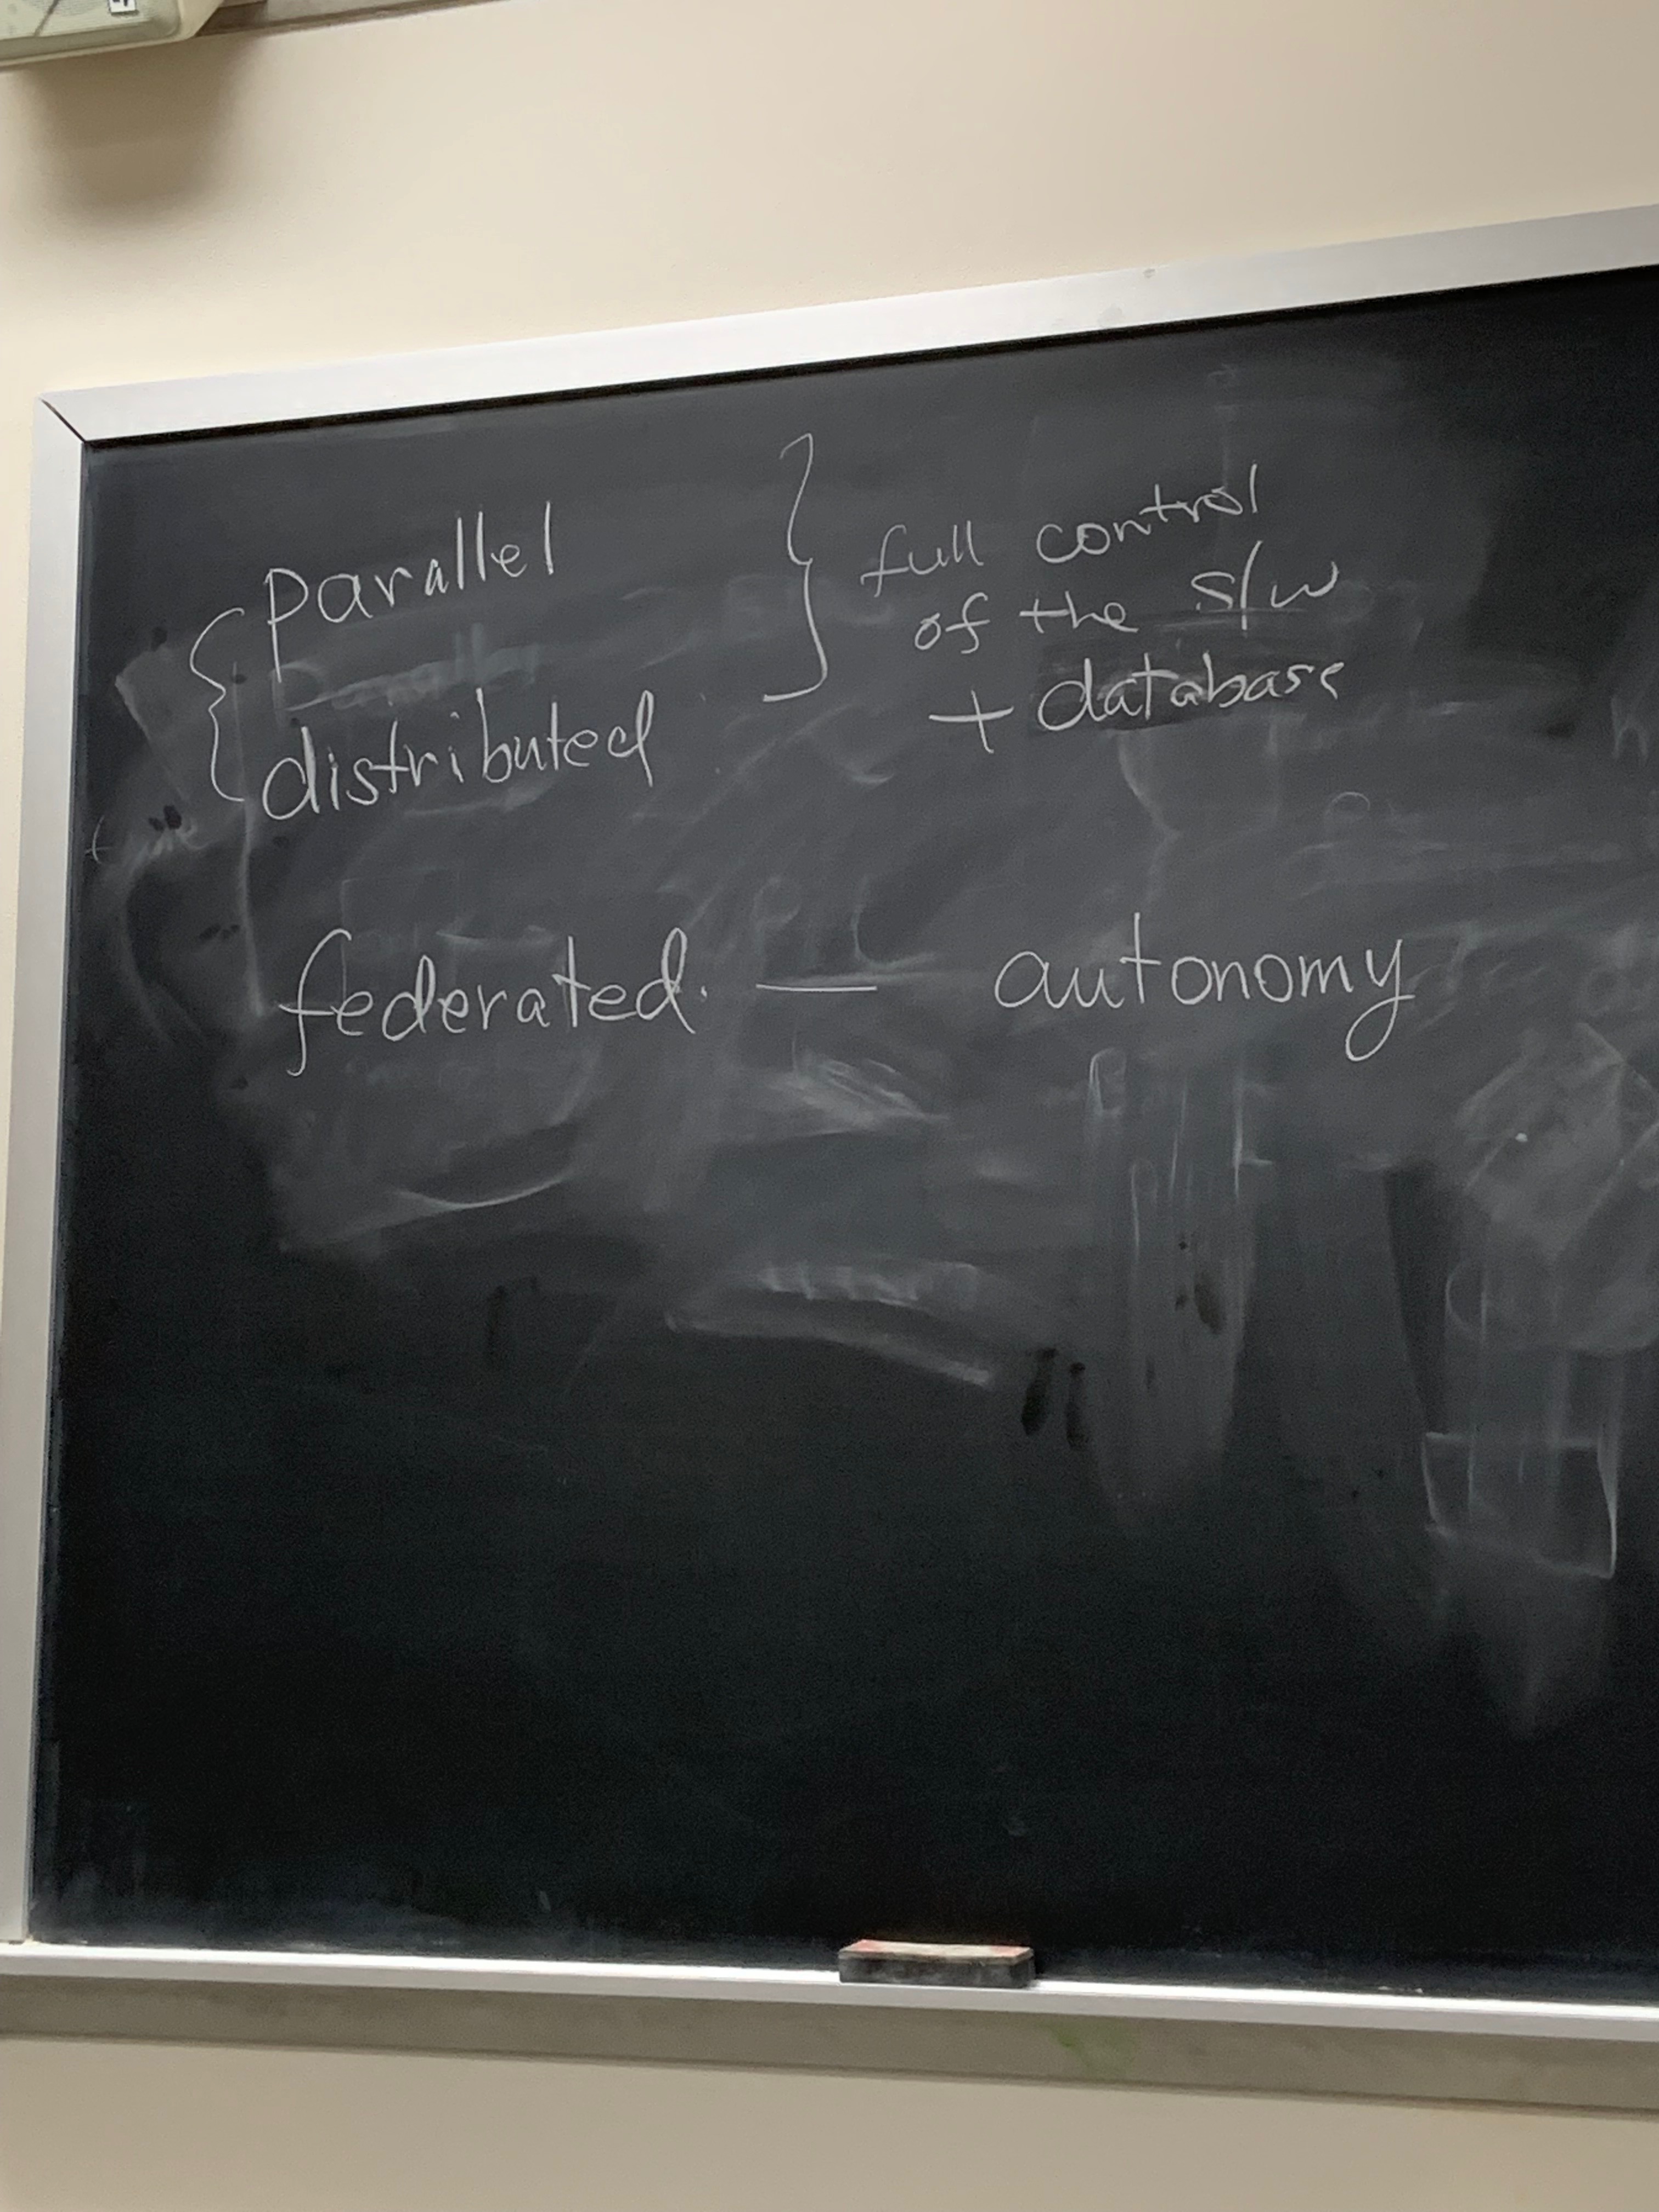 parallel
distributed
full control
of the s/w
+ database
federated. — autonomy